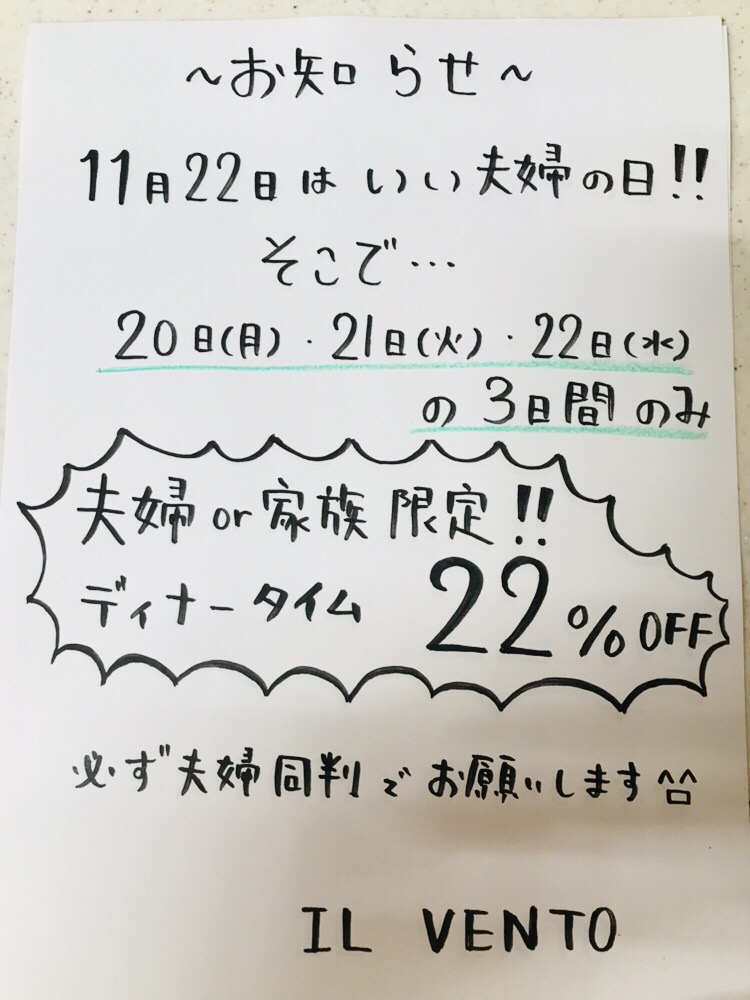 ~お知らせ~
11月22日はいい夫婦の日!!
そこで…
20日(月)・21日(火)・22日(水)
の3日間のみ
夫婦or家族限定!!
ディナータイム 22%OFF
必ず夫婦同判でお願いします^^
IL VENTO